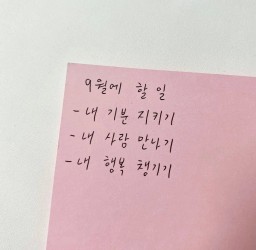 9월에 할 일
- 내 기분 지키기
- 내 사람 만나기
- 내 행복 챙기기